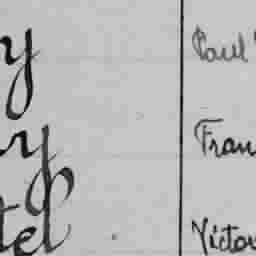 y Paul
ry Fran
tel Victor